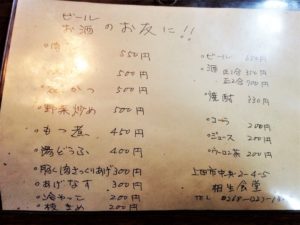 ビール
お酒のお友に!!
550円
500円
かつ 500円
野菜炒め 500円
もつ煮 450円
湯どうふ 400円
豚肉きっくりあげ 300円
あげなす 300円
冷やっこ 200円
枝まめ 200円
ビール
酒 正1合 350円
正2合 700円
焼酎 330円
コーラ 200円
ジュース 200円
ウーロン茶 200円
上田市中央2-4-5
相生食堂
TEL 0268-